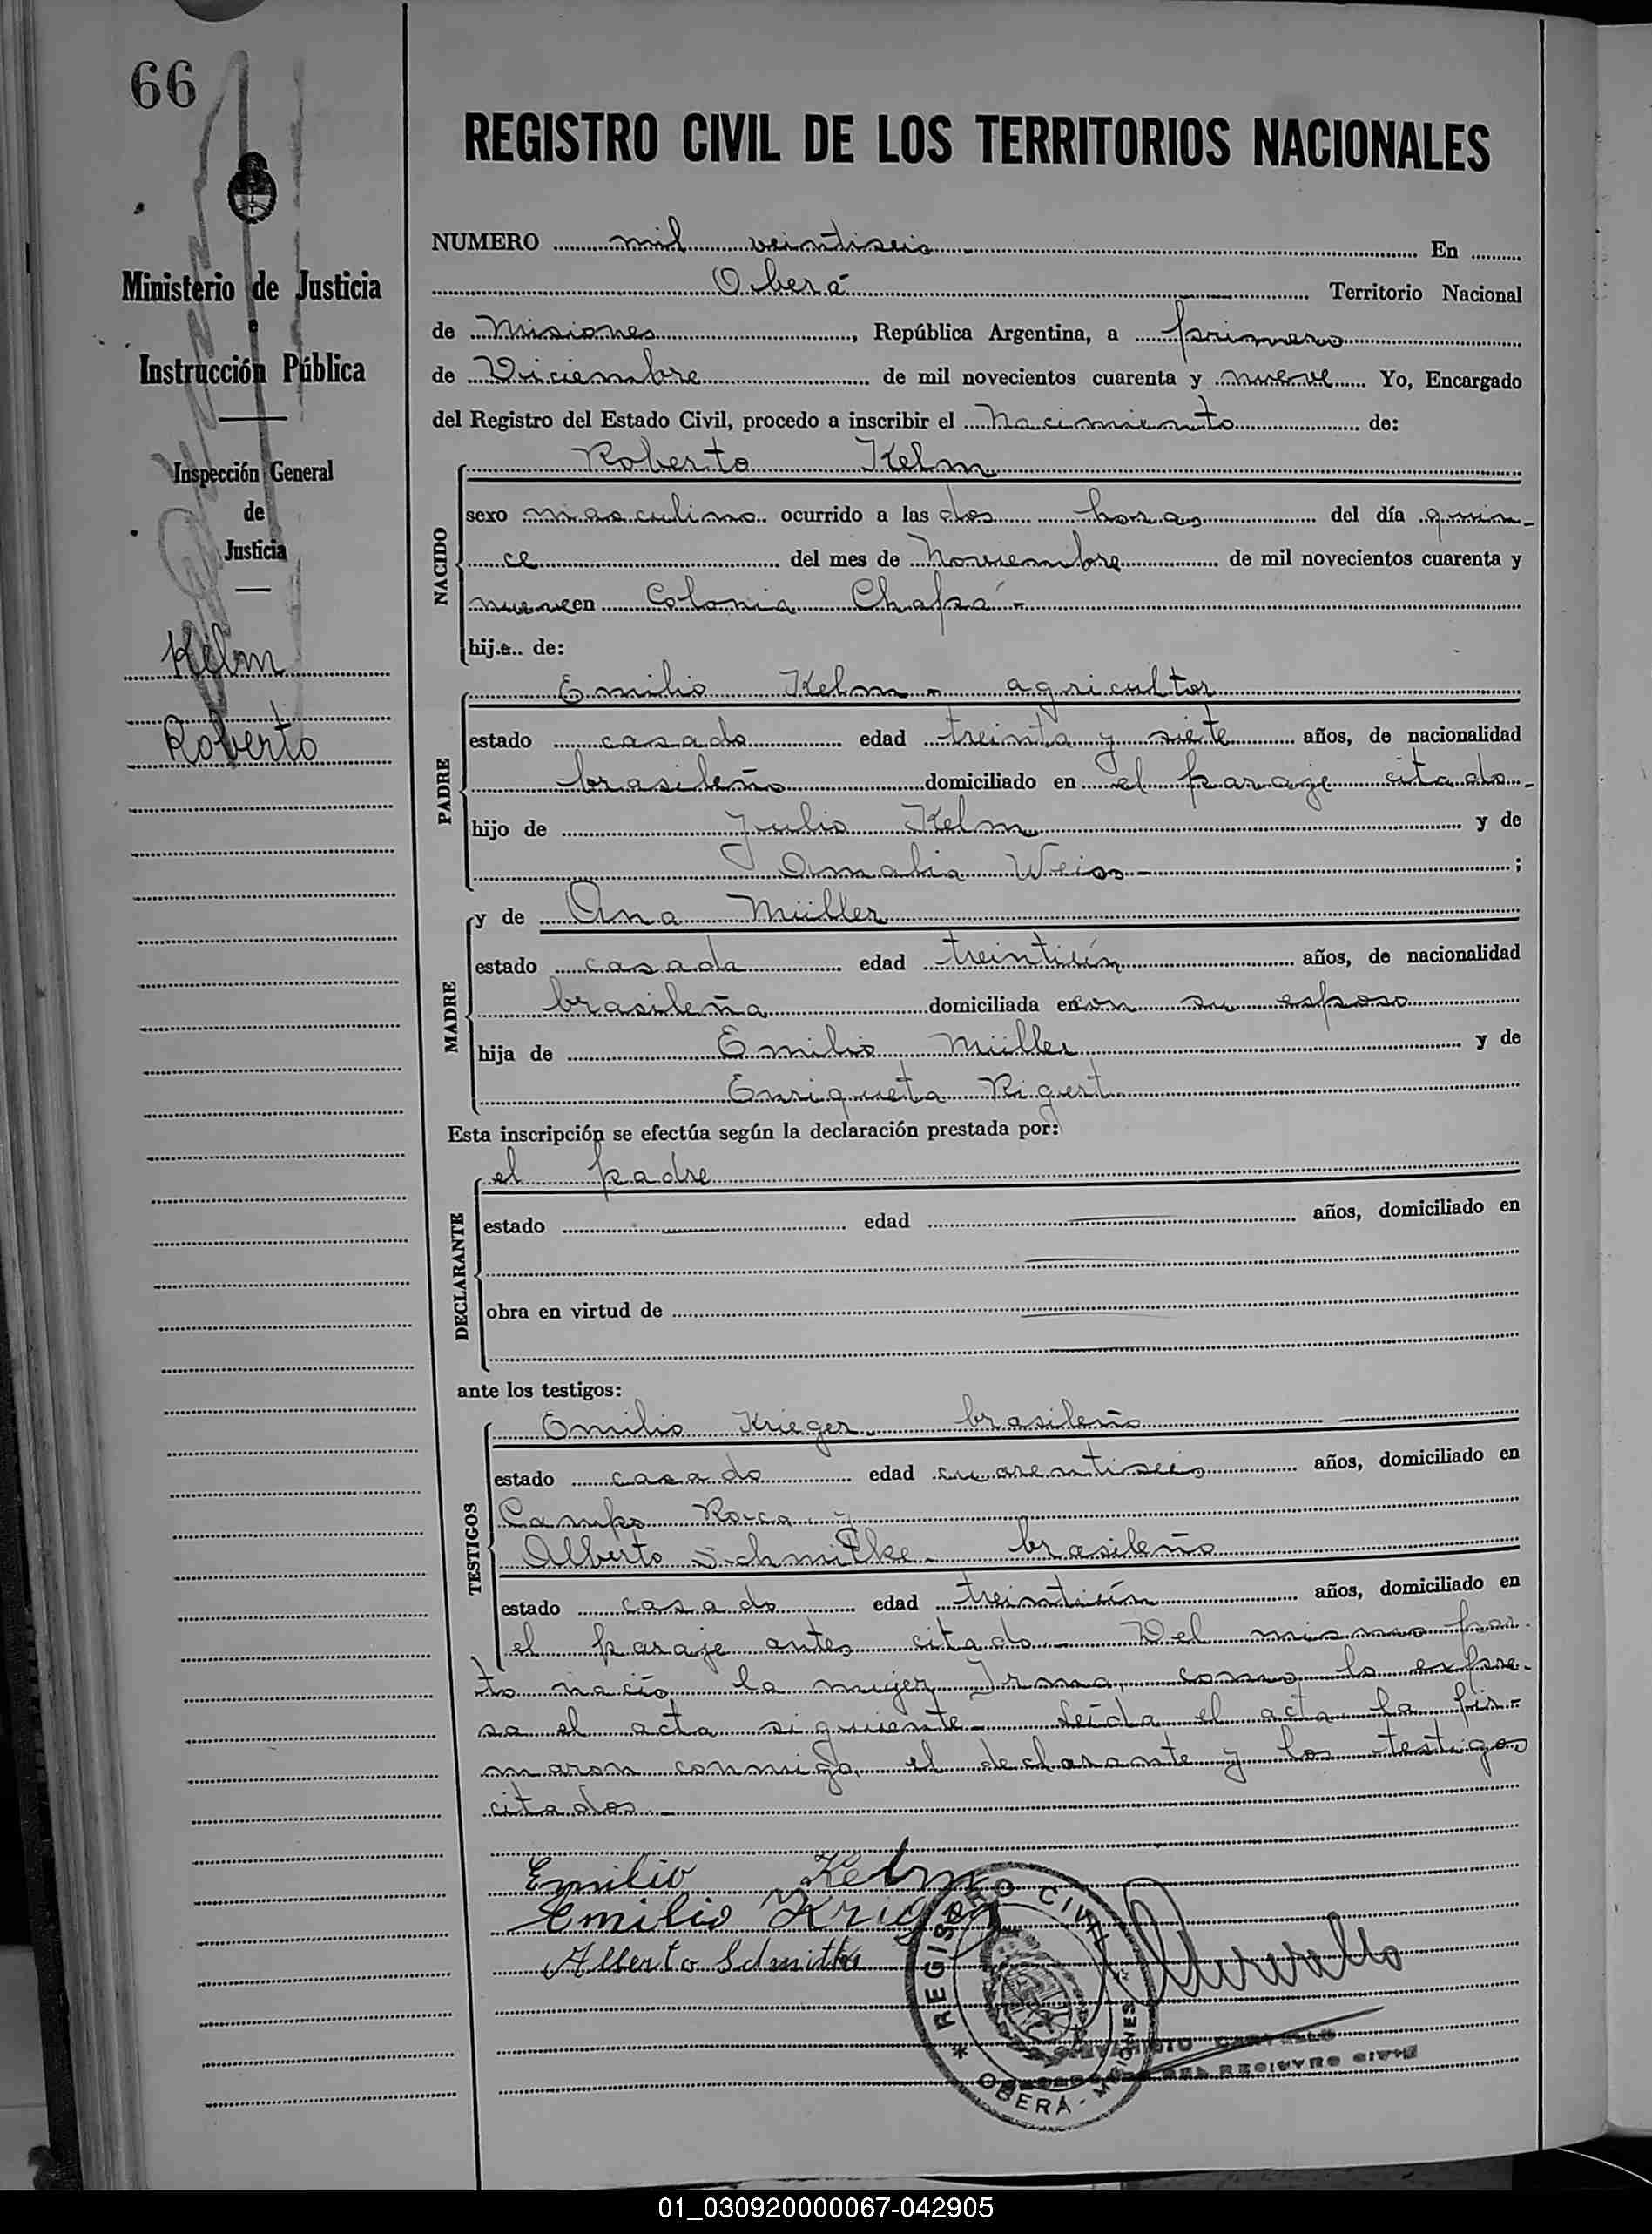 66
REGISTRO CIVIL DE LOS TERRITORIOS NACIONALES
Ministerio de Justicia
e
Instrucción Pública
Inspección General
de
Justicia
Kelm
Roberto
NUMERO mil veintiseis En
Oberá Territorio Nacional
de Misiones, República Argentina, a primero
de Diciembre de mil novecientos cuarenta y nueve Yo, Encargado
del Registro del Estado Civil, procedo a inscribir el Nacimiento de:
NACIDO
Roberto Kelm
sexo masculino ocurrido a las dos horas del día quin-
ce del mes de Noviembre de mil novecientos cuarenta y
nueve en Colonia Chapá -
hijo de:
PADRE
Emilio Kelm - agricultor
estado casado edad treinta y siete años, de nacionalidad
brasileño domiciliado en el paraje citado -
hijo de Julio Kelm y de
Amalia Weiss - ;
MADRE
y de Ana Müller
estado casada edad treintiún años, de nacionalidad
brasileña domiciliada en con su esposo
hija de Emilio Müller y de
Enriqueta Rigert
Esta inscripción se efectúa según la declaración prestada por:
DECLARANTE
el padre
estado edad años, domiciliado en
obra en virtud de
ante los testigos:
TESTIGOS
Emilio Krieger - brasileño
estado casado edad cuarentiseis años, domiciliado en
Campo Roca y
Alberto Schmitke - brasileño
estado casado edad treintiún años, domiciliado en
el paraje antes citado - Del mismo par-
to nació la mujer Irma, como lo expre-
sa el acta siguiente - Leída el acta la fir-
maron conmigo el declarante y los testigos
citados -
Emilio Kelm
Emilio Krieger
Alberto Schmitke
REGISTRO CIVIL
* OBERÁ - MISIONES
DEL REGISTRO CIVIL
01_030920000067-042905